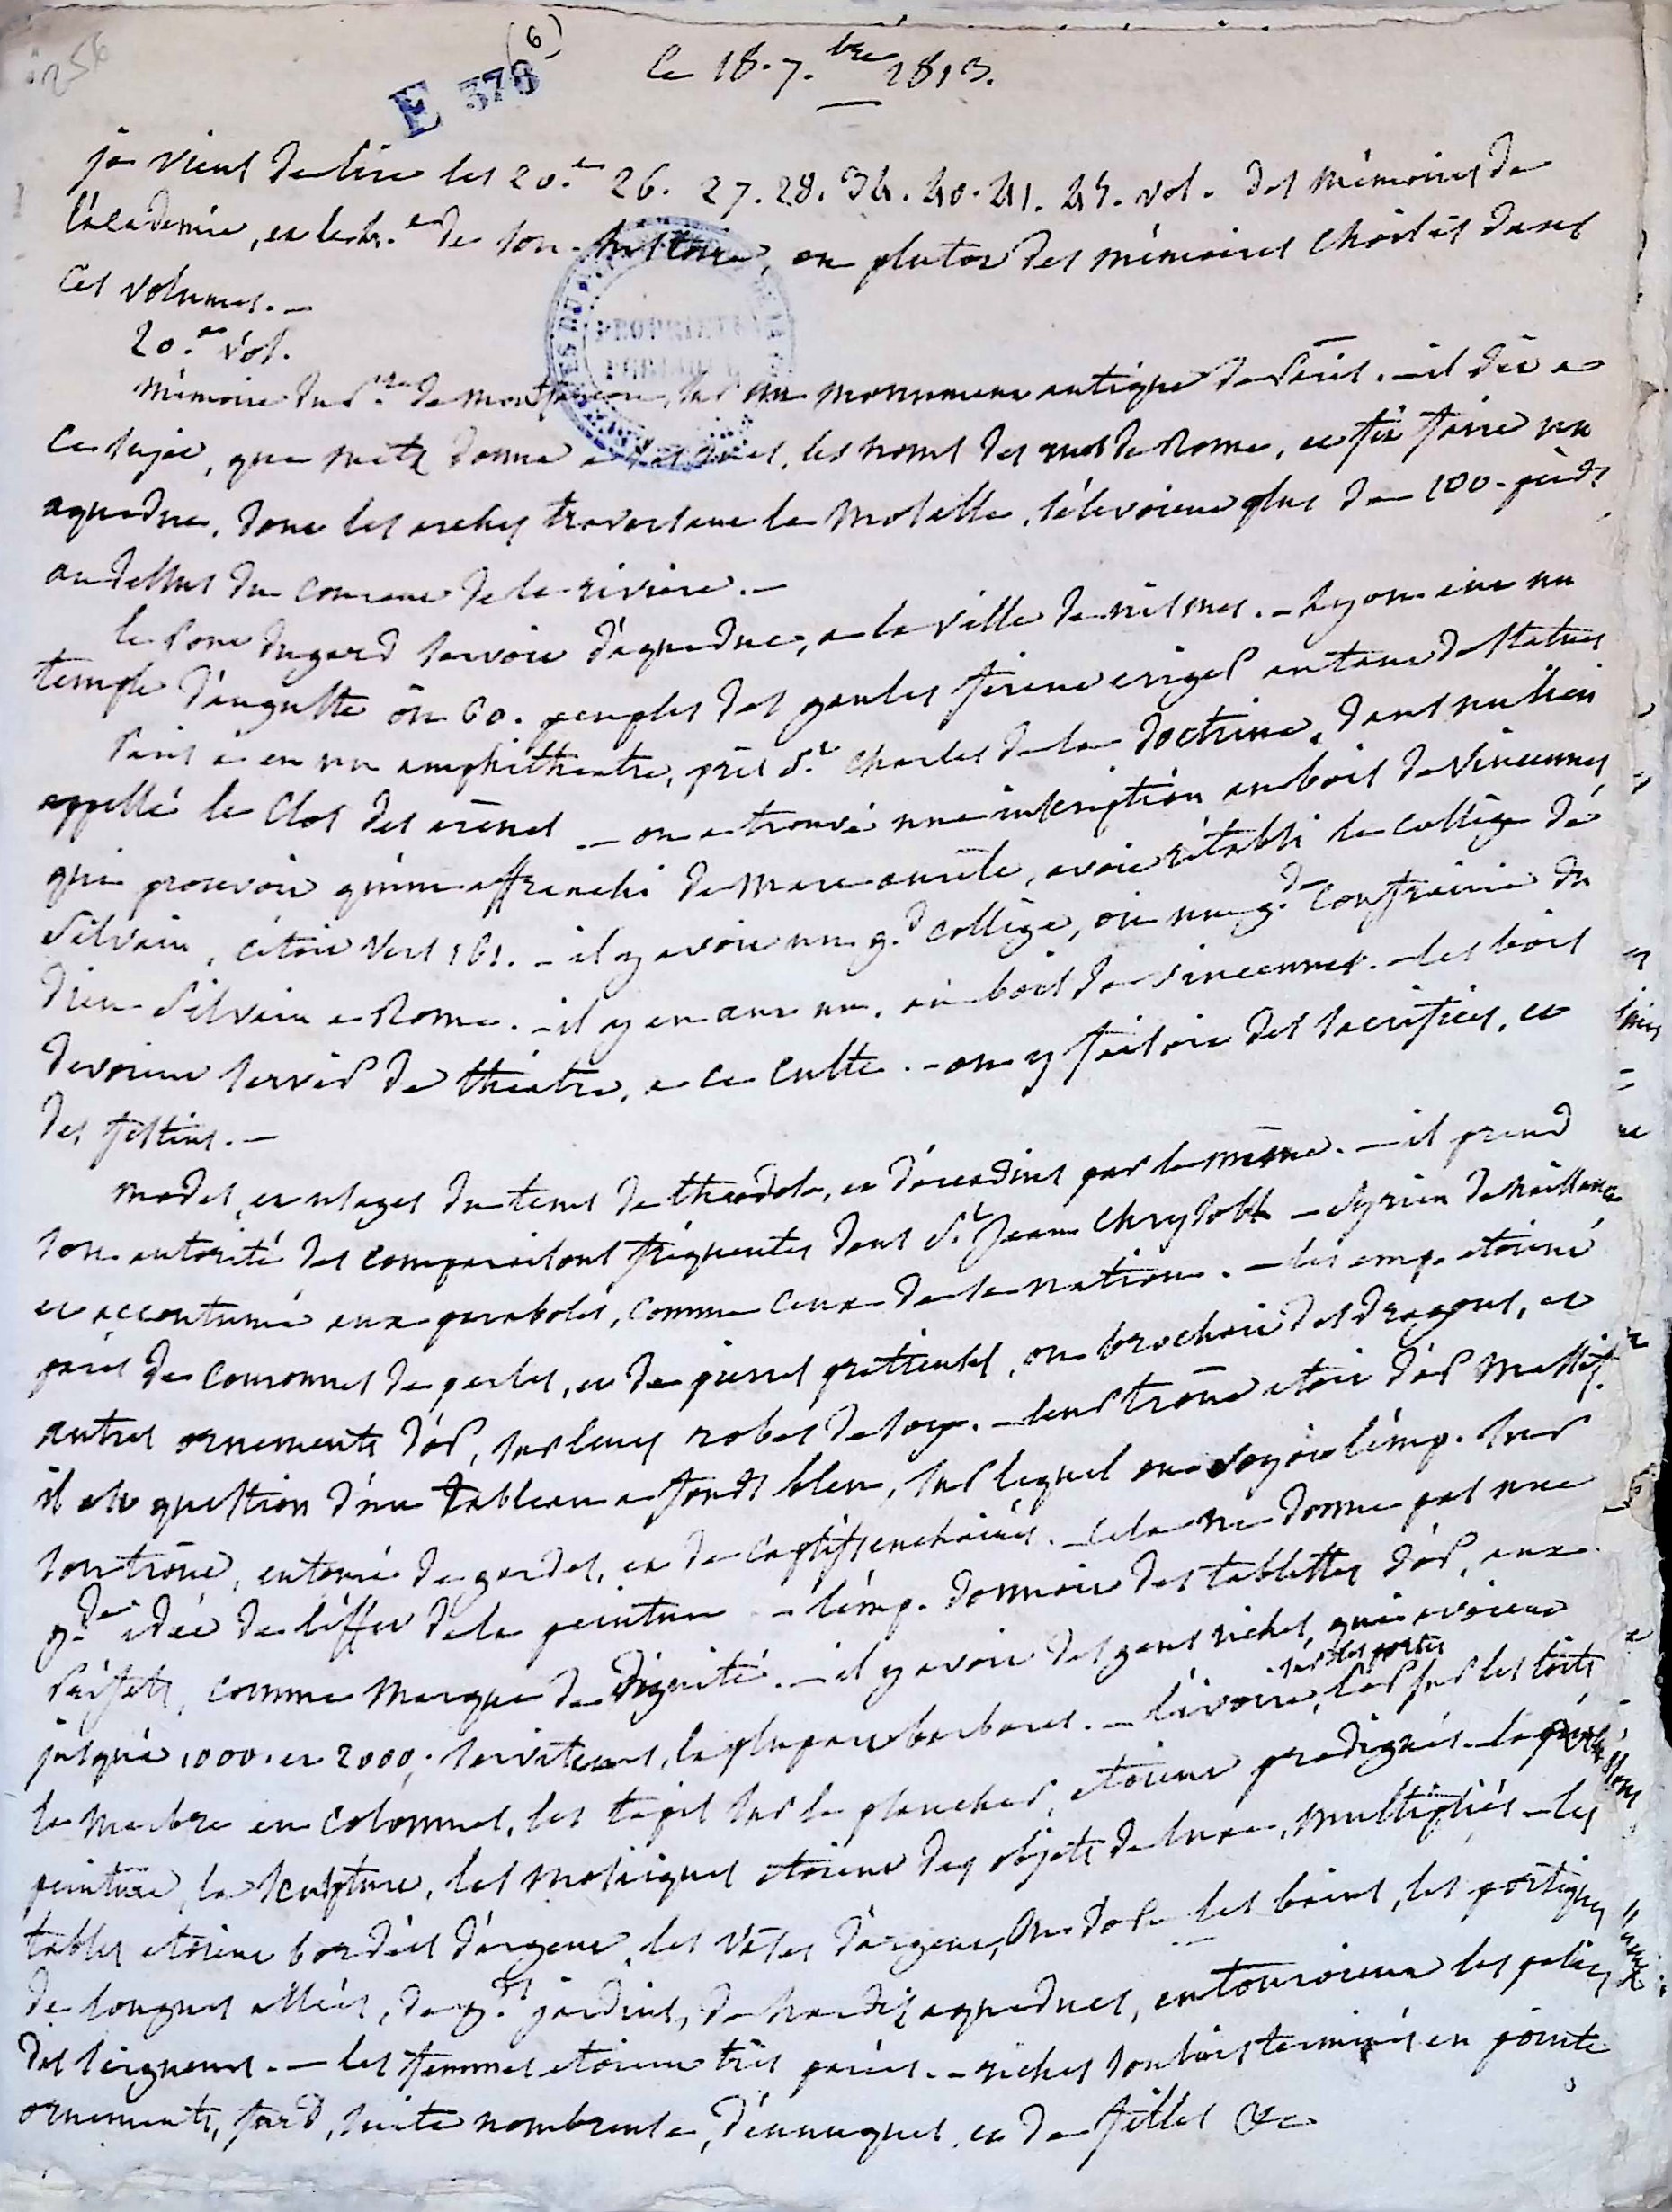 1256
E 378
(6)
le 18. 7.bre 1813.
je viens de lire les 20.e 26. 27. 28. 34. 40. 41. 45. vol. des mémoires de
l'académie, et le de son histoire, ou plutot des mémoires choisis dans
ces volumes. —
20.e vol.
mémoire du P. de montfaucon, sur un monument antique de Paris. — il dit a
ce sujet, que metz donna a ses rues, les noms des rues de Rome, et fit faire un
aqueduc, dont les arches traversant la moselle, s'élevoient plus de 100. pieds
au dessus du courant de la riviere. —
le Pont du gard servoit d'aqueduc, a la ville de nismes. — Lyon eut un
temple d'auguste où 60. peuples des gaules firent eriger autant de statues
Paris a eu un amphithéatre, près St. Charles de la doctrine, dans un lieu
appellé le Clos des arènes — on a trouvé une inscription au bois de Vincennes,
qui prouvoit qu'un affranchi de marc aurèle, avoit rétabli le collège de
Silvain, c'étoit vers 161. — il y avoit un gd. collège, ou une gde. confrairie du
dieu Silvain a Rome. — il y en eut un, au bois de Vincennes. — les bois
devoient servir de théatre, a ce culte. — on y faisoit des sacrifices, et
des festins. —
modes, et usages du tems de théodose, et d'arcadius par le même. — il prend
son autorité des comparaisons fréquentes dans St. Jean Chrysost. — syrien de naissance
et accoutumé aux paraboles, comme ceux de sa nation. — les emp. etoient
parés de couronnes de perles, et de pierres prétieuses, on brochoit des dragons, et
autres ornements d'or, sur leurs robes de soye. — leur trône etoit d'or massif.
il est question d'un tableau a fonds bleu, sur lequel on voyoit l'emp. sur
son trône, entouré de gardes, et de captifs enchainés. — cela ne donne pas une
gde. idée de l'effet de la peinture — l'emp. donnoit des tablettes d'or, aux
Préfets, comme marque de dignité. — il y avoit des gens riches, qui avoient
jusqu'à 1000. et 2000. serviteurs, la plupart barbares. — l'ivoire sur les portes, l'or sur les toits
le marbre en colonnes, les tapis sur le plancher, etoient prodigués. — la
peinture, la sculpture, les mosaiques etoient des objets de luxe, multipliés — les
tables etoient bordées d'argent, les vases d'argent, ou d'or — les bains, les portiques
de longues allées, de gds. jardins, de hardis aqueducs, entouroient les palais
des seigneurs. — les femmes etoient très parées. — riches souliers terminés en pointe
ornements, fard, suite nombreuse, d'eunuques, et de filles &c